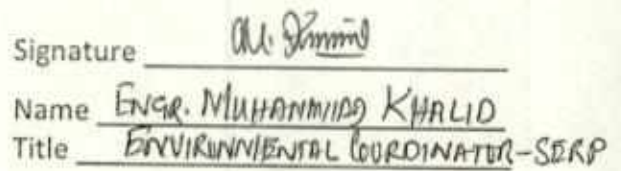 Signature
Name ENGR. MUHAMMAD KHALID
Title ENVIRONMENTAL COORDINATOR-SERP